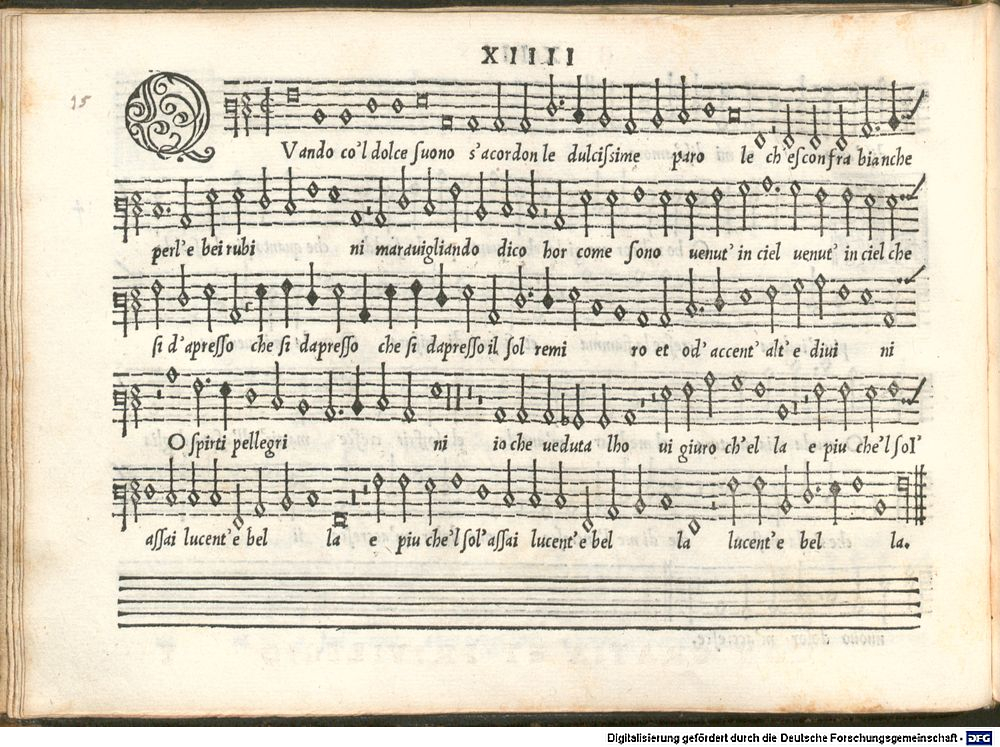 XIIII
15
QVando co'l dolce suono s'acordon le dulcissime paro le ch'escon fra bianche
perl'e bei rubi ni marauigliando dico hor come sono uenut' in ciel uenut' in ciel che
si d'apresso che si dapresso che si dapresso il sol remi ro et od'accent'alt'e diui ni
O spirti pellegri ni io che ueduta lho ui giuro ch'el la e piu che'l sol'
assai lucent'e bel la e piu che'l sol'assai lucent'e bel la lucent'e bel la.
Digitalisierung gefördert durch die Deutsche Forschungsgemeinschaft - DFG